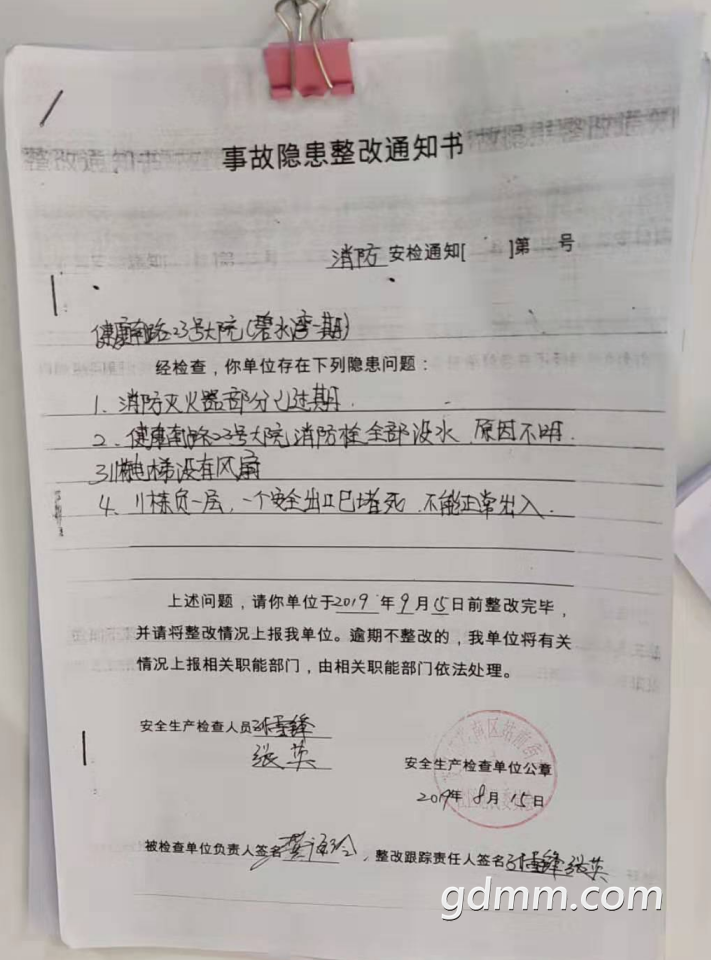 事故隐患整改通知书
消防 安检通知[ ]第 号
健康南路23号大院(碧水湾一期)
经检查，你单位存在下列隐患问题：
1、消防灭火器部分已过期.
2、健康南路23号大院消防栓全部没水 原因不明.
电梯没有风扇
4、11栋负一层，一个安全出口已堵死 不能正常出入.
上述问题，请你单位于2019年9月15日前整改完毕，
并请将整改情况上报我单位。逾期不整改的，我单位将有关
情况上报相关职能部门，由相关职能部门依法处理。
安全生产检查人员
张英
安全生产检查单位公章
2019年8月15日
被检查单位负责人签名 整改跟踪责任人签名 张英
gdmm.com